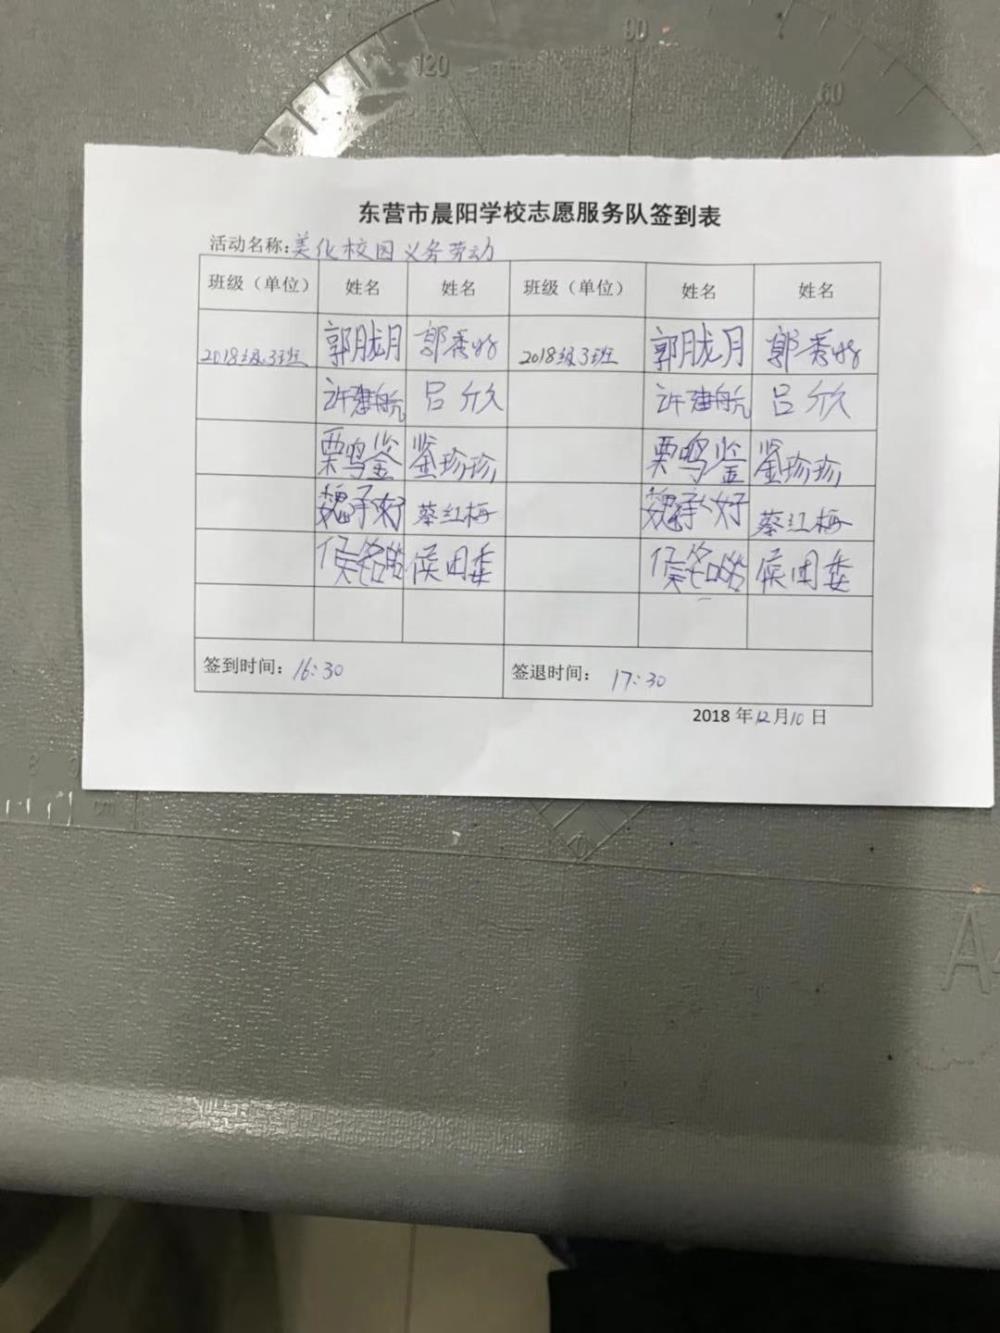 120
90
60
东营市晨阳学校志愿服务队签到表
活动名称:美化校园义务劳动
班级（单位） 姓名 姓名 班级（单位） 姓名 姓名
2018级3班 郭胧月 郭秀好 2018级3班 郭胧月 郭秀好
许建航 吕欣 许建航 吕欣
栗鸣鉴 鉴珍珍 栗鸣鉴 鉴珍珍
魏承好 蔡红梅 魏承好 蔡红梅
侯铭皓 侯田委 侯铭皓 侯田委
签到时间：16:30 签退时间：17:30
2018年12月10日
8
cm
A4